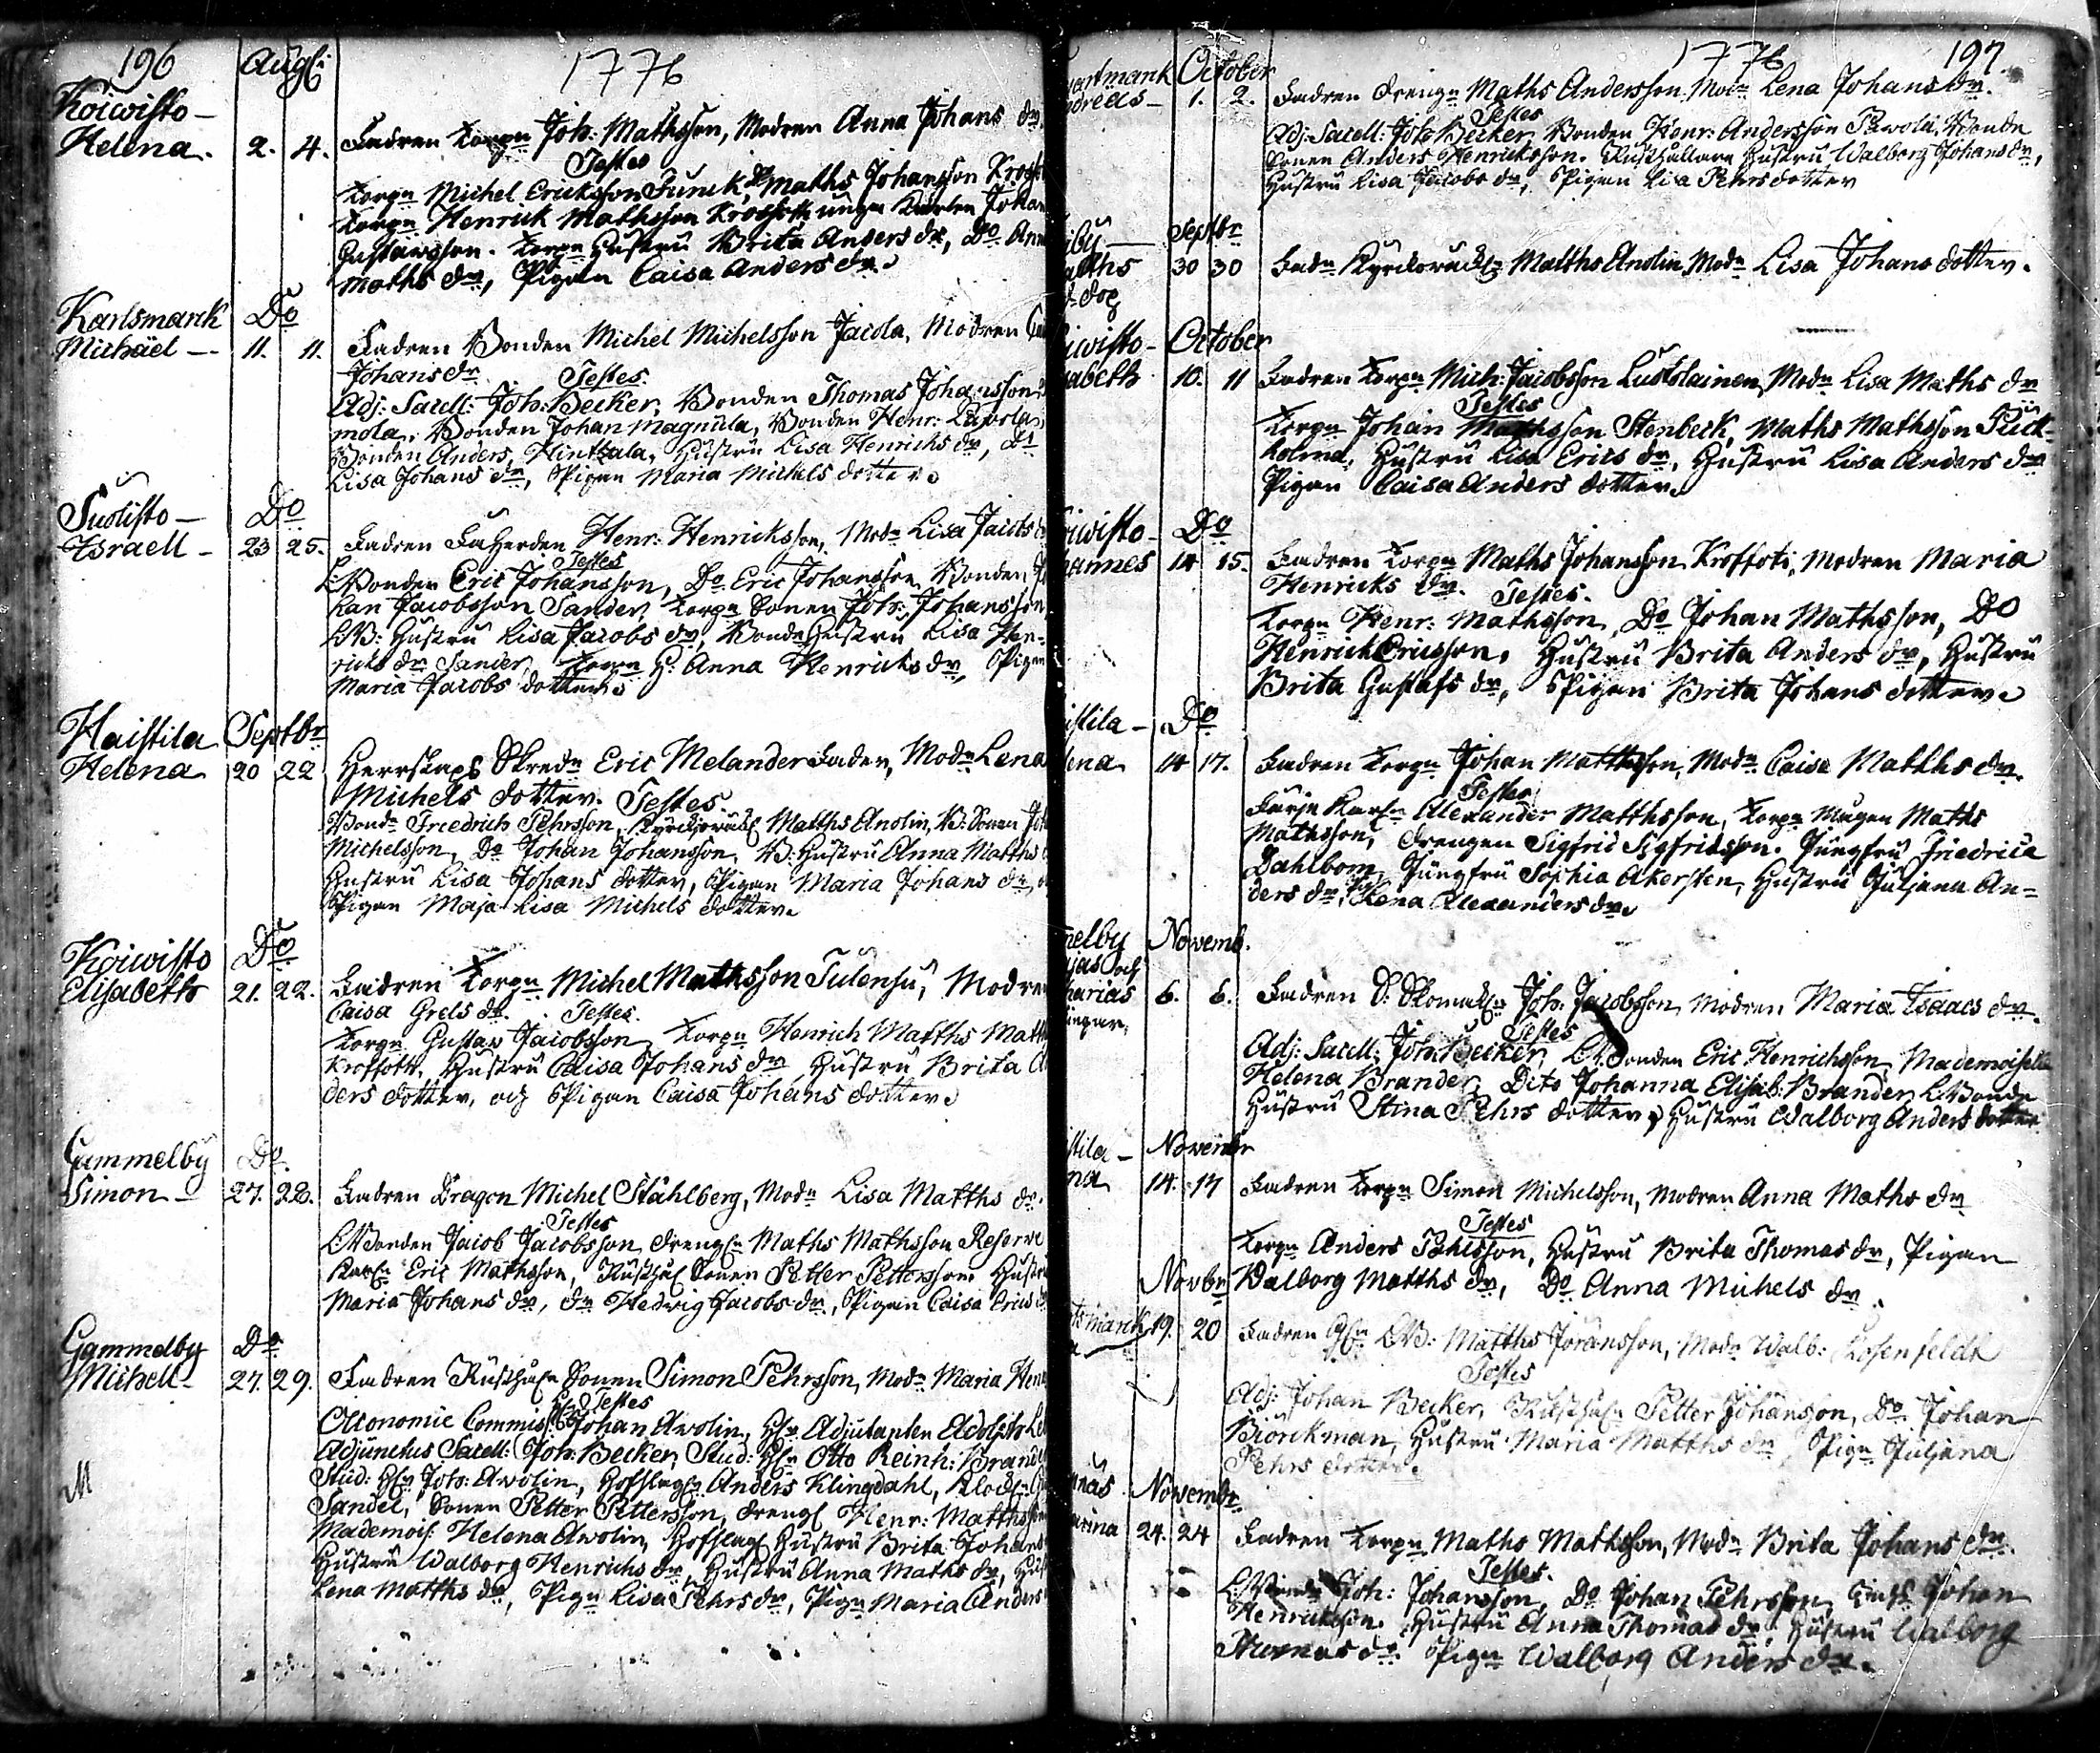 196 Augl: 1776
Koiwisto —
Helena. 2. 4. Fadren Torpn Joh: Mathsson, Modren Anna Johans dr.
Testes
Torpn Michel Ericksson Junck, Do Maths Johansson
Torpn Henrick Mathsson Unga Karlen Johan
Gustawsson. Torpn Hustru Brita Anders dr, Do Ann
Maths dr, Pigan Caisa Anders dr.
Karlsmarck Do
Michäel — 11. 11. Fadren Bonden Michel Michelsson Jacola, Modren
Johans dr. Testes.
Adj: Sacell: Joh: Becker, Bonden Thomas Johansson
mola. Bonden Johan Magnula, Bonden Henr:
Bonden Anders Hintzala, Hustru Lisa Henrichs dr, Do
Lisa Johans dr, Pigan Maria Michels dotter.
Suolisto — Do
Israell — 23 25. Fadren Faherden Henr: Henricksson, Modn Lisa Jacobs
Testes
LBonden Eric Johansson, Do Eric Johansson Bonden Jo
han Jacobsson Sander, Torpn Sonen Joh: Johansson,
LB: Hustru Lisa Jacobs dr, Bonde Hustru Lisa Hen-
ricks dr Sander, Torpn H: Anna Henricks dr, Pigan
Maria Jacobs dotter.
Haistila Septbr
Helena 20 22 Herrskaps Skredn Eric Melander Fader, Modn Lena
Michels dotter. Testes.
Bondn Friedrich Pehrsson, Matths Enolin, B: Sonen
Michelsson, Do Johan Johansson, B: Hustru Anna Matths
Hustru Lisa Johans dotter, Pigan Maria Johans dr,
Pigan Maja Lisa Michels dotter.
Koiwisto Do
Elisabeth 21. 22. Fadren Torpn Michel Mathsson Tulensu, Modren
Caisa Grels dr. Testes.
Torpn Gustav Jacobsson, Torpn Henrich Matths
Kroffott, Hustru Caisa Johans dr Hustru Brita
ders dotter, och Pigan Caisa Johans dotter.
Gammelby Do.
Simon — 27. 28. Fadren Dragon Michel Ståhlberg, Modn Lisa Matths dr.
Testes
LBonden Jacob Jacobsson, Drengn Maths Mathsson Reserve
Karln Eric Mathsson, Rusthåll Sonen Petter Pettersson. Hustru
Maria Johans dr, dn Hedvig Jacobs dr, Pigan Caisa Erics
Gammelby Do
Michell- 27. 29. Fadren Rusthålln Sonen Simon Pehrsson, Modn Maria
Testes
Oeconomie Commiss: Johan Awolin, Hr Adjutanten Adolph
Adjunctus Sacell: Joh: Becker, Stud: Hr Otto Reinh: Brand
Stud: Hr Joh: Awolin, Hofslagn Anders Klingdahl,
Sandel, Sonen Petter Pettersson, Drengl Henr: Matthsson
Mademois: Helena Awolin, Hofslag Hustru Brita Johans
Hustru Walborg Henrichs dr, Hustru Anna Maths dr,
Lena Matths dr, Pign Lisa Pehrs dr, Pign Maria Anders
M
October 1776 197.
1. 2. Fadren Drengn Maths Andersson, Modn Lena Johans dr.
Testes
Adj: Sacell: Joh: Becker, Bonden Henr: Andersson Pawola, Bonde
Sonen Anders Henricksson. Rusthållare Hustru Walborg Johans dr,
Hustru Lisa Jacobs dr, Pigan Lisa Pehrs dotter
Septbr
30 30 Fadn Matths Enolin, Modn Lisa Johans dotter.
October
10. 11 Fadren Torpn Mich: Jacobsson Luskolainen, Modn Lisa Maths dr
Testes
Torpn Johan Mathsson Stenbeck, Maths Mathsson
Hustru Lisa Erics dr, Hustru Lisa Anders dr
Pigan Caisa Anders dotter.
Do
14 15. Fadren Torpn Maths Johansson Kroffoti, Modren Maria
Henricks dr. Testes.
Torpn Henr: Mathsson, Do Johan Mathsson, Do
Henrich Ericsson, Hustru Brita Anders dr, Hustru
Brita Gustafs dr, Pigan Brita Johans dotter.
Do
14 17. Fadren Torpn Johan Matthsson, Modn Caisa Matths dr.
Testes
Färje Karln Alexander Matthsson, Torpn Magen Maths
Mathsson, Drengen Sigfrid Sigfridsson. Jungfru Friedrica
Dahlbom, Jungfru Sophia Akersten, Hustru Juljana An-
ders dr, Pig. Lena Alexanders dr.
Novemb.
6. 6. Fadren S: Skomakn Joh: Jacobsson, Modren Maria Isaacs dr.
Testes
Adj: Sacell: Joh: Becker, LBonden Eric Henrichsson, Mademoiselle
Helena Brander, Dito Johanna Elisab: Brander, LBonde
Hustru Stina Pehrs dotter, Hustru Walborg Anders dotter
Novembr
14. 17 Fadren Torpn Simon Michelsson, Modren Anna Maths dr
Testes
Torpn Anders Pehrsson, Hustru Brita Thomas dr, Pigan
Walborg Matths dr, Do Anna Michels dr.
Novbr
19. 20 Fadren LB: Matths Joransson, Modn Walb: Rosenfeldt
Testes
Adj: Johan Becker, Rusthålln Petter Johansson, Do Johan
Biörckman, Hustru Maria Matths dr, Pign Juljana
Pehrs dotter.
Novembr
24. 24 Fadren Torpn Maths Mathsson, Modn Brita Johans dr.
Testes.
LBondn Joh: Johansson, Do Johan Pehrsson, Johan
Henricksson. Hustru Anna Thomas dr, Hustru Walborg
Thomas dr. Pign Walborg Anders dr.